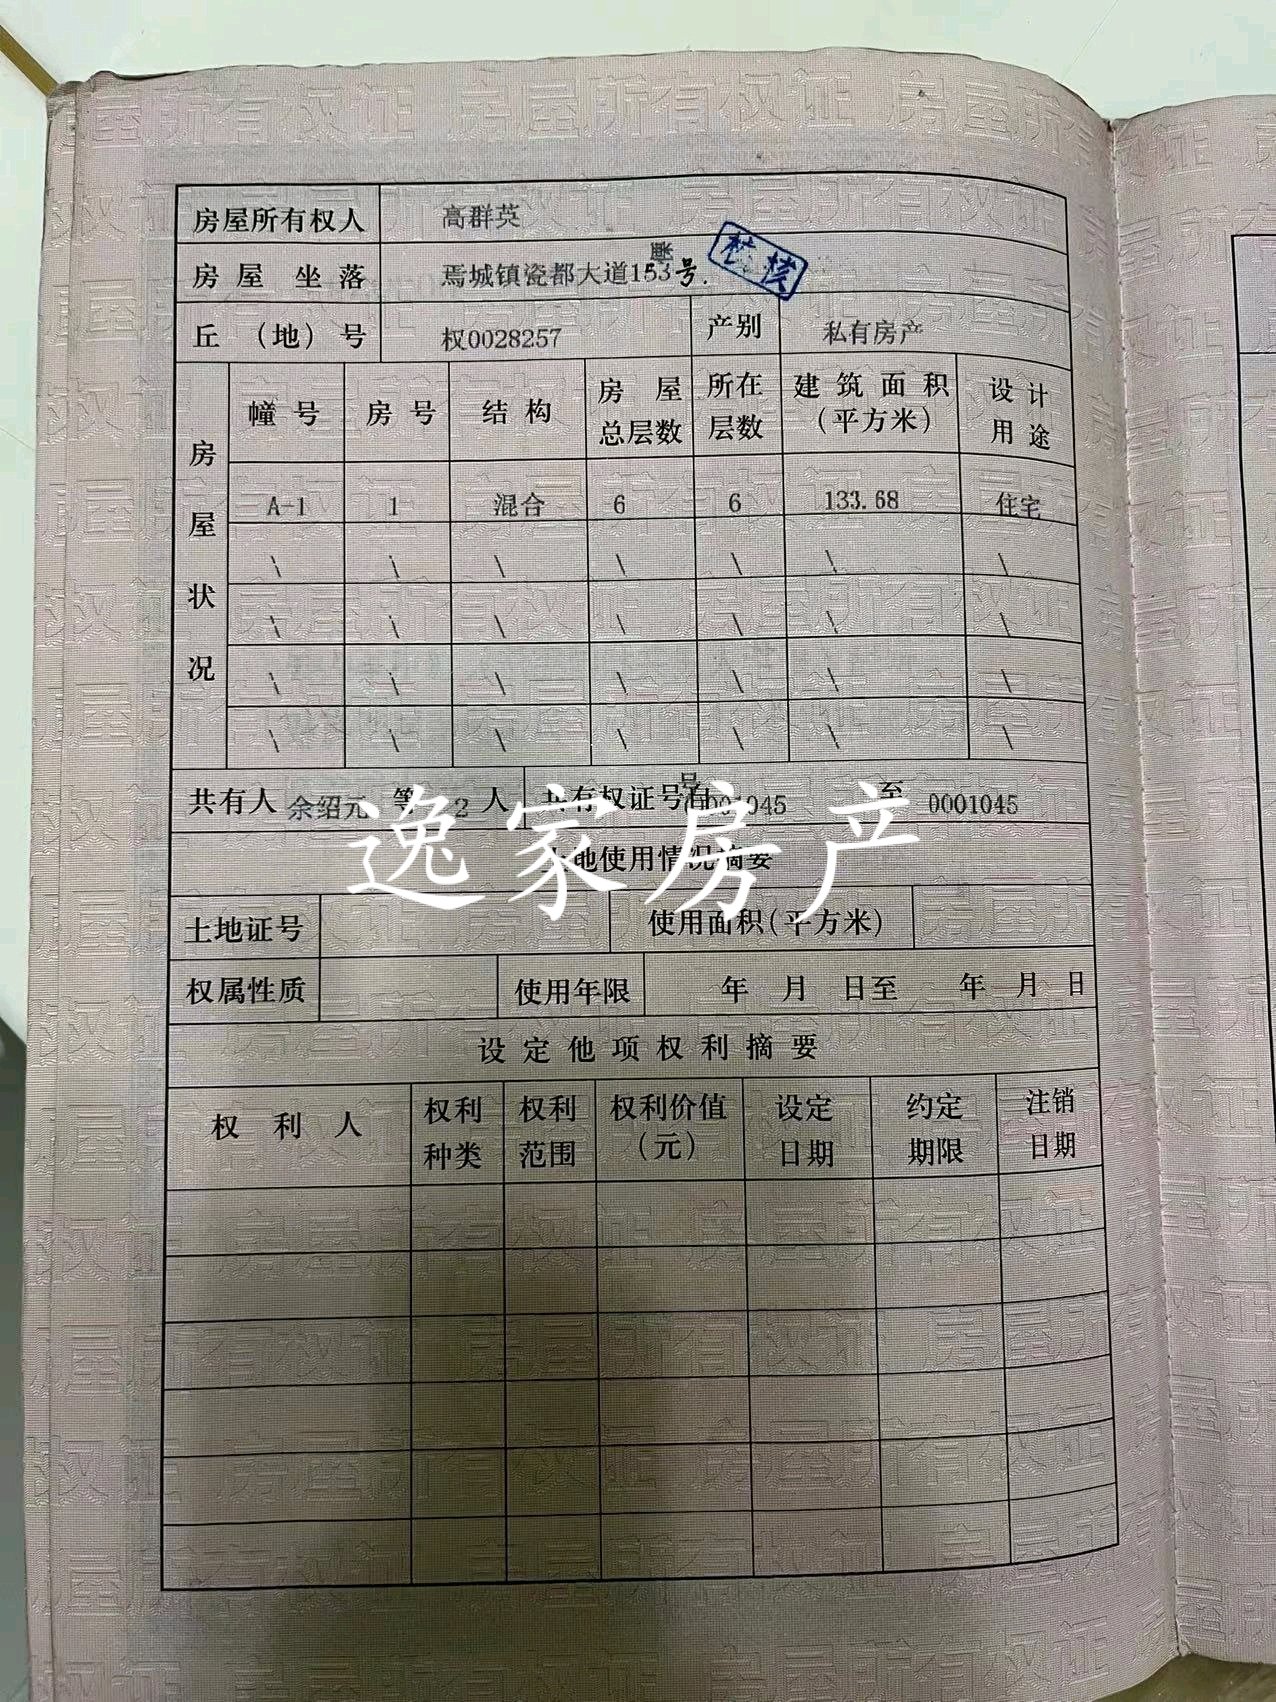 房屋所有权人 高群英
房屋坐落 焉城镇瓷都大道153号.
丘（地）号 权0028257 产别 私有房产
房屋状况
幢号 房号 结构 房屋总层数 所在层数 建筑面积（平方米） 设计用途
A-1 1 混合 6 6 133.68 住宅
\ \ \ \ \ \ \
\ \ \ \ \ \ \
\ \ \ \ \ \ \
\ \ \ \ \ \ \
共有人 余绍元 等 2 人 共有权证号自 0001045 至 0001045
逸家房产
土地使用情况摘要
土地证号 使用面积(平方米)
权属性质 使用年限 年 月 日至 年 月 日
设定他项权利摘要
权利人 权利种类 权利范围 权利价值（元） 设定日期 约定期限 注销日期